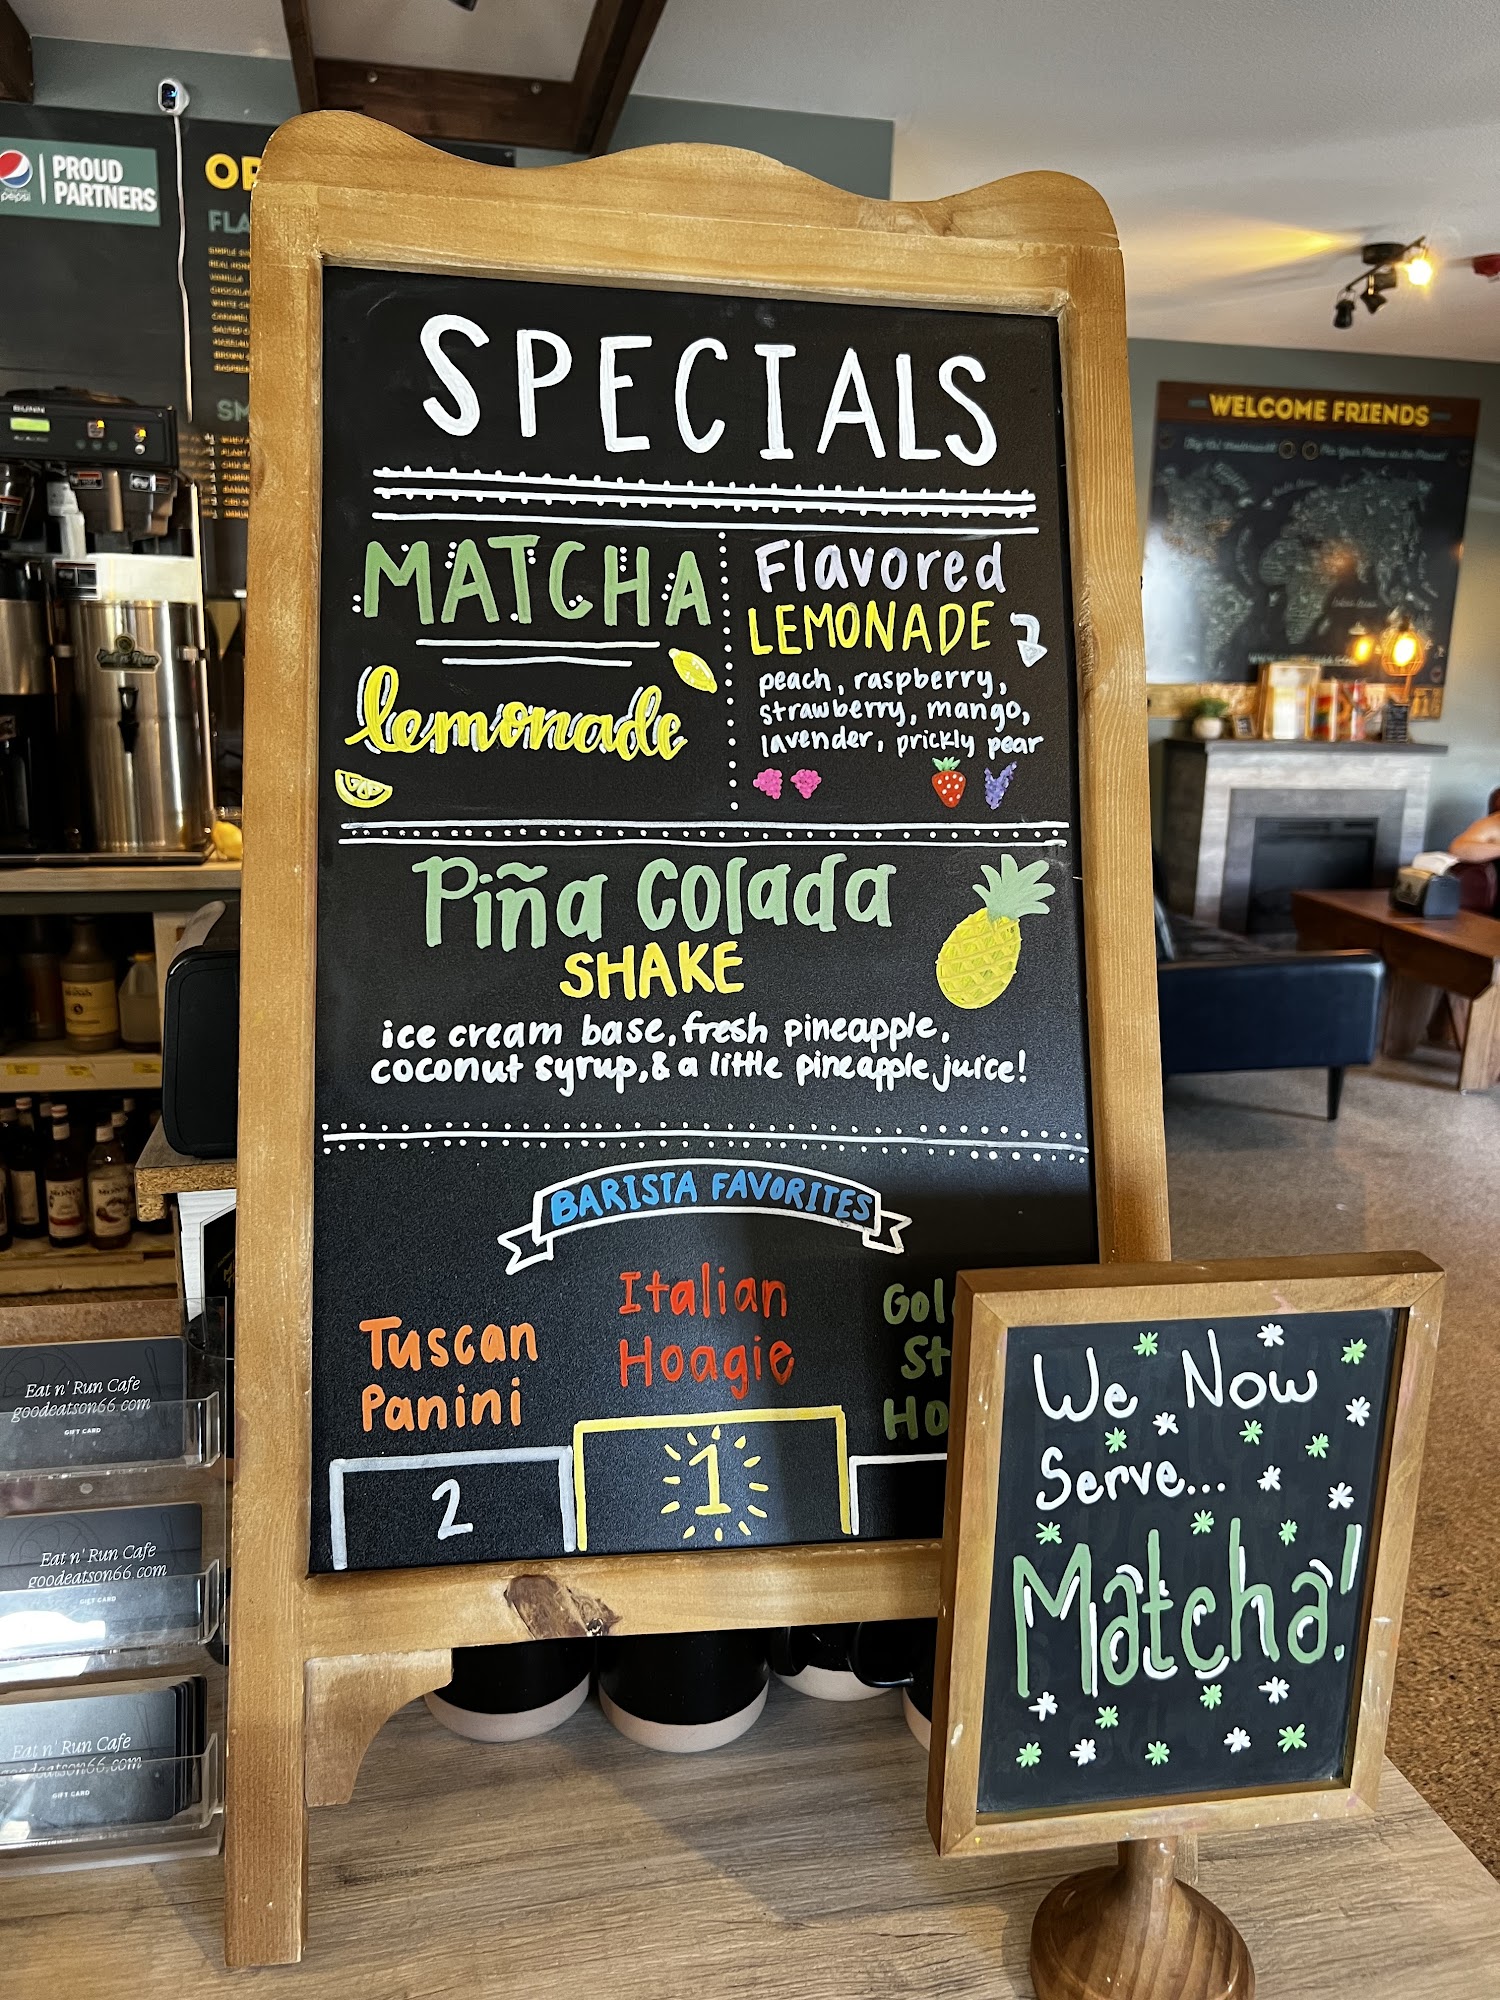 PROUD
PARTNERS
pepsi
BUNN
SPECIALS
MATCHA
lemonade
Flavored
LEMONADE
peach, raspberry,
strawberry, mango,
lavender, prickly pear
Piña Colada
SHAKE
ice cream base, fresh pineapple,
coconut syrup, & a little pineapple juice!
BARISTA FAVORITES
Tuscan
Panini
2
Italian
Hoagie
1
Gol
St
Ho
We Now
Serve...
Matcha!
WELCOME FRIENDS
Eat n' Run Cafe
goodeatson66.com
GIFT CARD
Eat n' Run Cafe
goodeatson66.com
GIFT CARD
Eat n' Run Cafe
goodeatson66.com
GIFT CARD